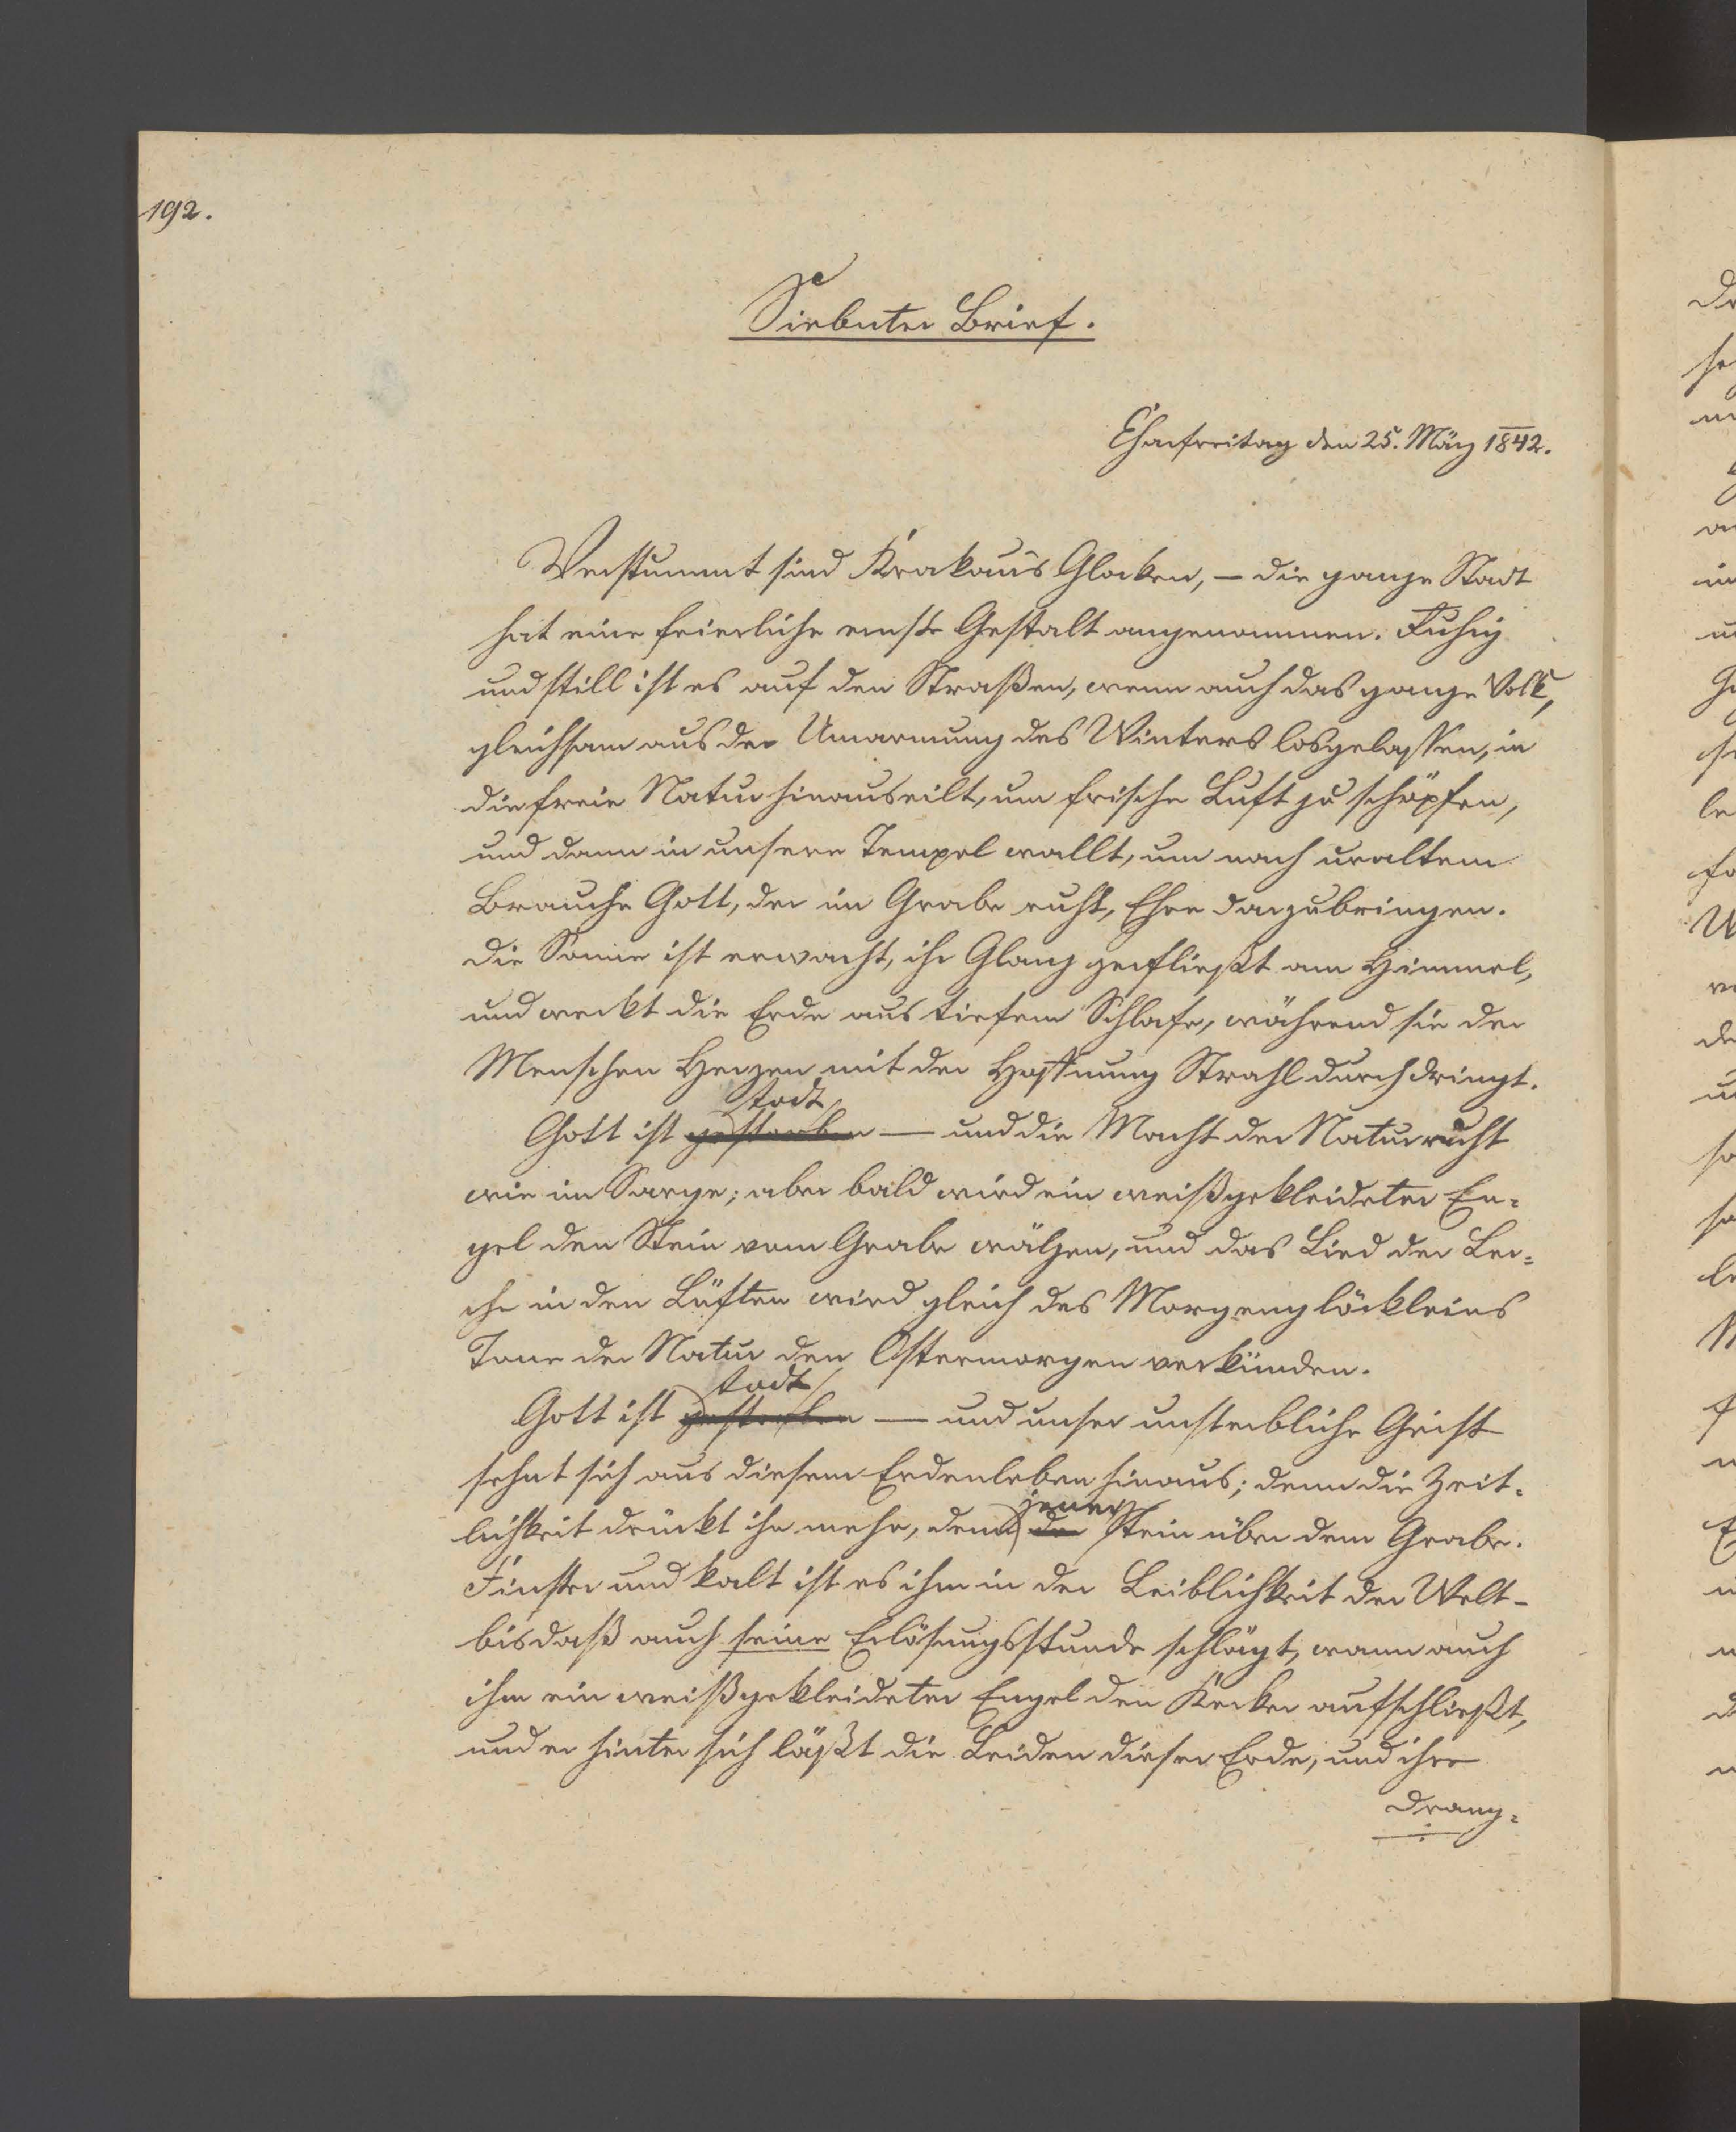 192.
Siebenter Brief.
Charfreitag den 25. März 1842.
Verstummt sind Krakau's Glocken, – die ganze Stadt
hat eine feierliche ernste Gestalt angenommen. Ruhig
und still ist es auf den Straßen, wenn auch das ganze Volk,
gleichsam aus der Umarmung des Winters losgelassen, in
die freie Natur hinauseilt, um frische Luft zu schöpfen,
und dann in unsere Tempel wallt, um nach uraltem
Brauche Gott, der im Grabe ruht, Ehre darzubringen.
Die Sonne ist erwacht, ihr Glanz zerfließt am Himmel,
und weckt die Erde aus tiefem Schlafe, während sie der
Menschen Herzen mit der Hoffnung Strahl durchdringt.
todt
Gott ist gestorben — und die Macht der Natur ruht
wie im Sarge; aber bald wird ein weißgekleideter En=
gel den Stein vom Grabe wälzen, und das Lied der Ler=
che in den Lüften wird gleich des Morgenglöckleins
Tone der Natur den Ostermorgen verkünden.
todt
Gott ist gestorben — und unser unsterbliche Geist
sehnt sich aus diesem Erdenleben hinaus; denn die Zeit=
jener
lichkeit drückt ihn mehr, denn der Stein über dem Grabe.
Finster und kalt ist es ihm in der Leiblichkeit der Welt –
bis daß auch seine Erlösungsstunde schlägt, wann auch
ihm ein weißgekleideter Engel den Kerker aufschließt,
und er hinter sich läßt die Leiden dieser Erde, und ihre
Drang=